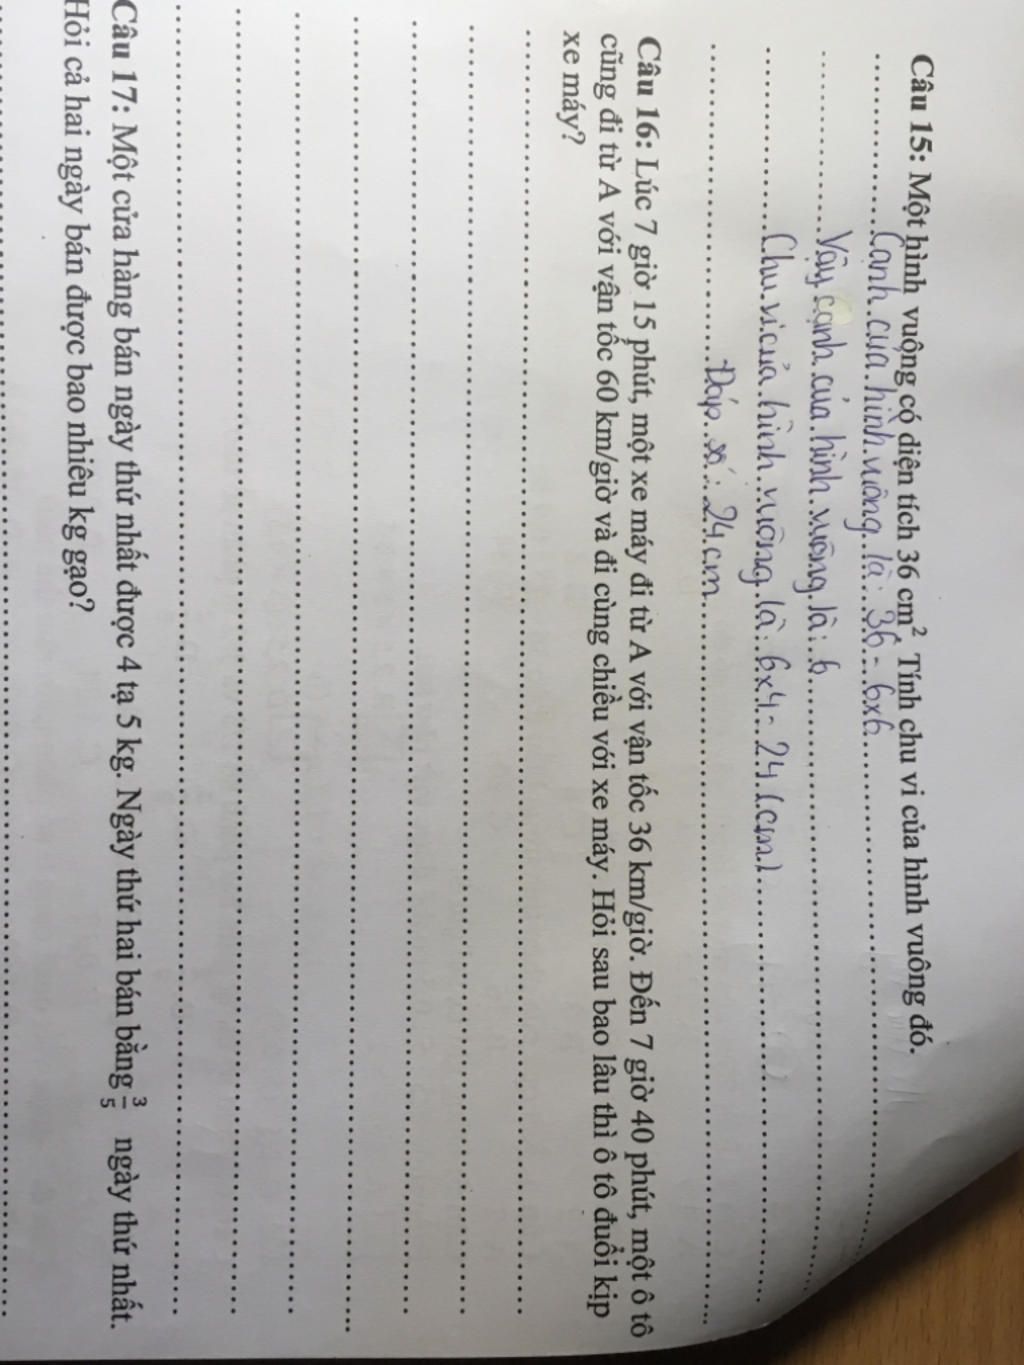 Câu 15: Một hình vuông có diện tích 36 cm² Tính chu vi của hình vuông đó.
Cạnh của hình vuông là: 36 = 6x6
Vậy cạnh của hình vuông là: 6
Chu vi của hình vuông là: 6x4 = 24 (cm)
Đáp số: 24 cm
Câu 16: Lúc 7 giờ 15 phút, một xe máy đi từ A với vận tốc 36 km/giờ. Đến 7 giờ 40 phút, một ô tô
cũng đi từ A với vận tốc 60 km/giờ và đi cùng chiều với xe máy. Hỏi sau bao lâu thì ô tô đuổi kịp
xe máy?
Câu 17: Một cửa hàng bán ngày thứ nhất được 4 tạ 5 kg. Ngày thứ hai bán bằng 3/5 ngày thứ nhất.
Hỏi cả hai ngày bán được bao nhiêu kg gạo?